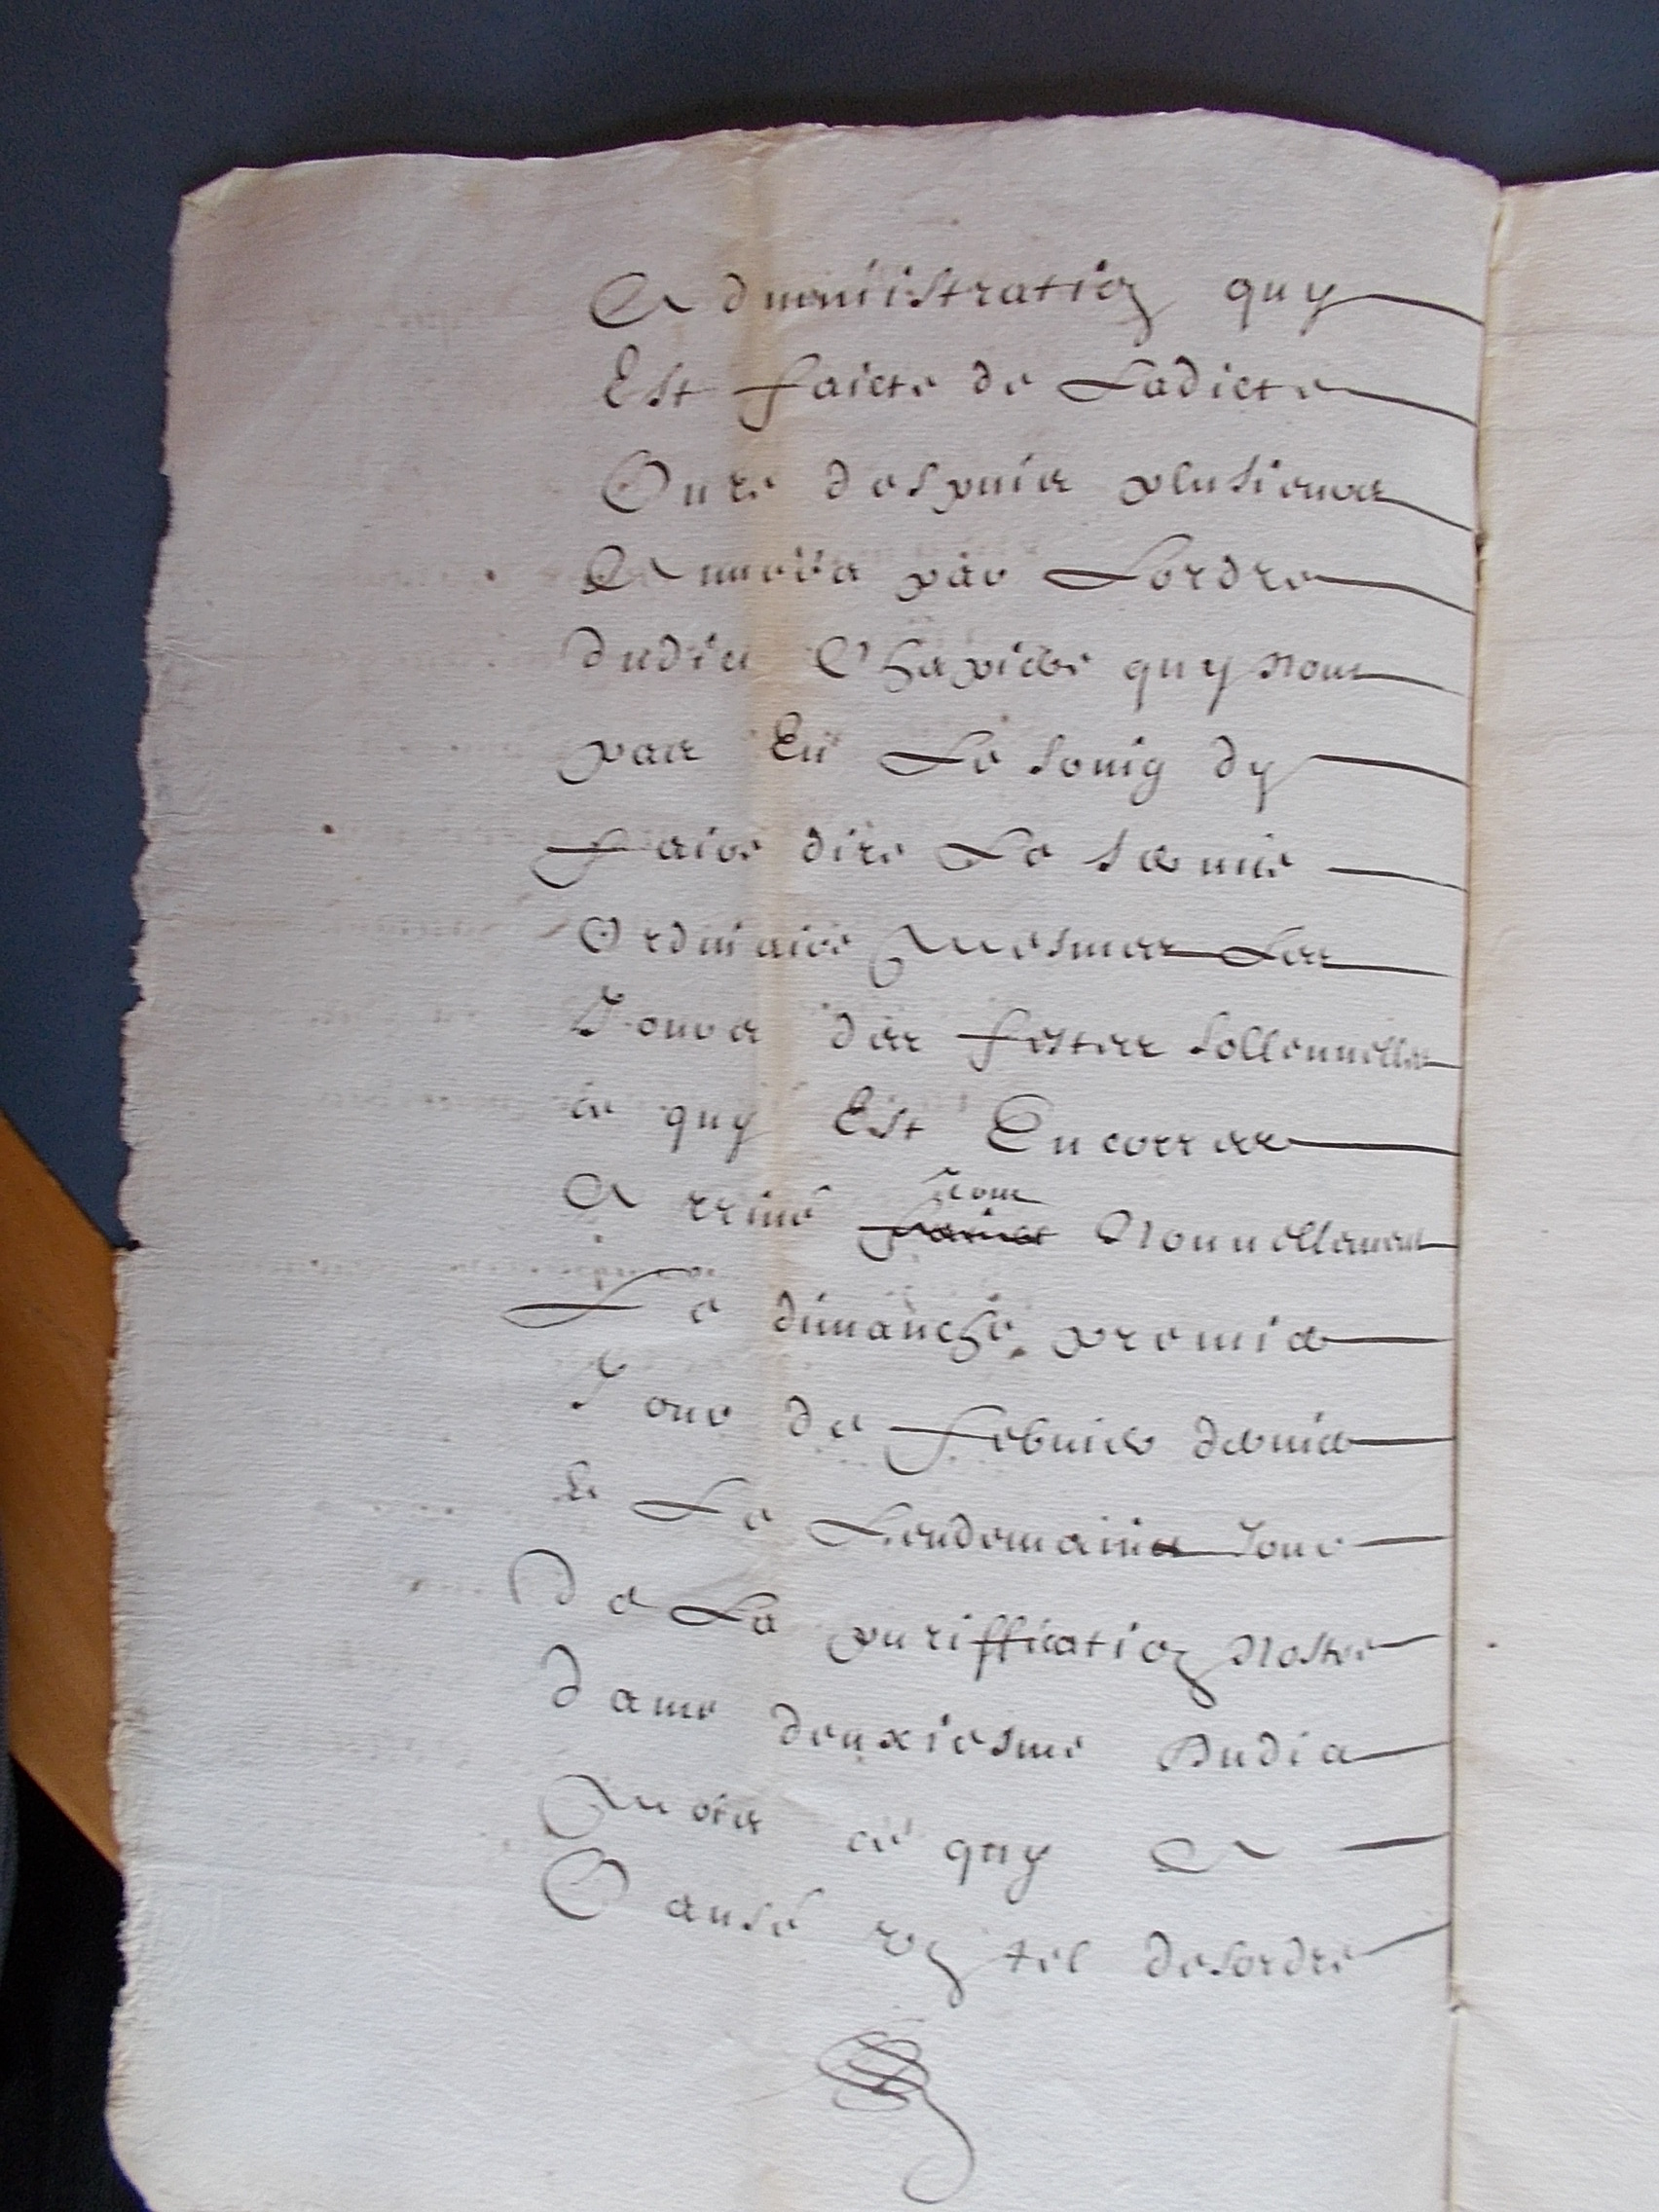 Administration quy
Est faicte de Ladicte
Cure despuis plusieurs
Années par Lordre
dudict Chapitre quy nont
pas Eu Le soing dy
faire dire Le service
Ordinaire Mesmes Les
Jours des festes sollennelles
ce quy Est Encorres
Arrivé tout Nouvellement
Le dimanche premier
Jour de febvrier dernier
Et Le Lendemain Jour
De La puriffication Nostre
dame deuxiesme Dudict
Mois ce quy A
Causé un tel desordre